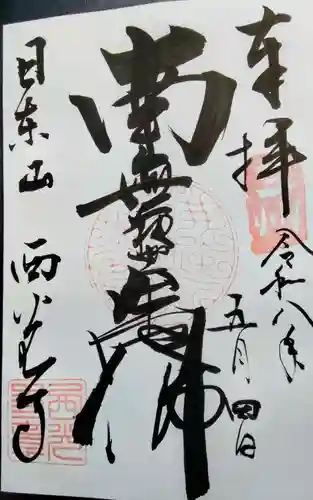 奉拝
令和八年
五月四日
南無阿弥陀佛
日東山
西光寺